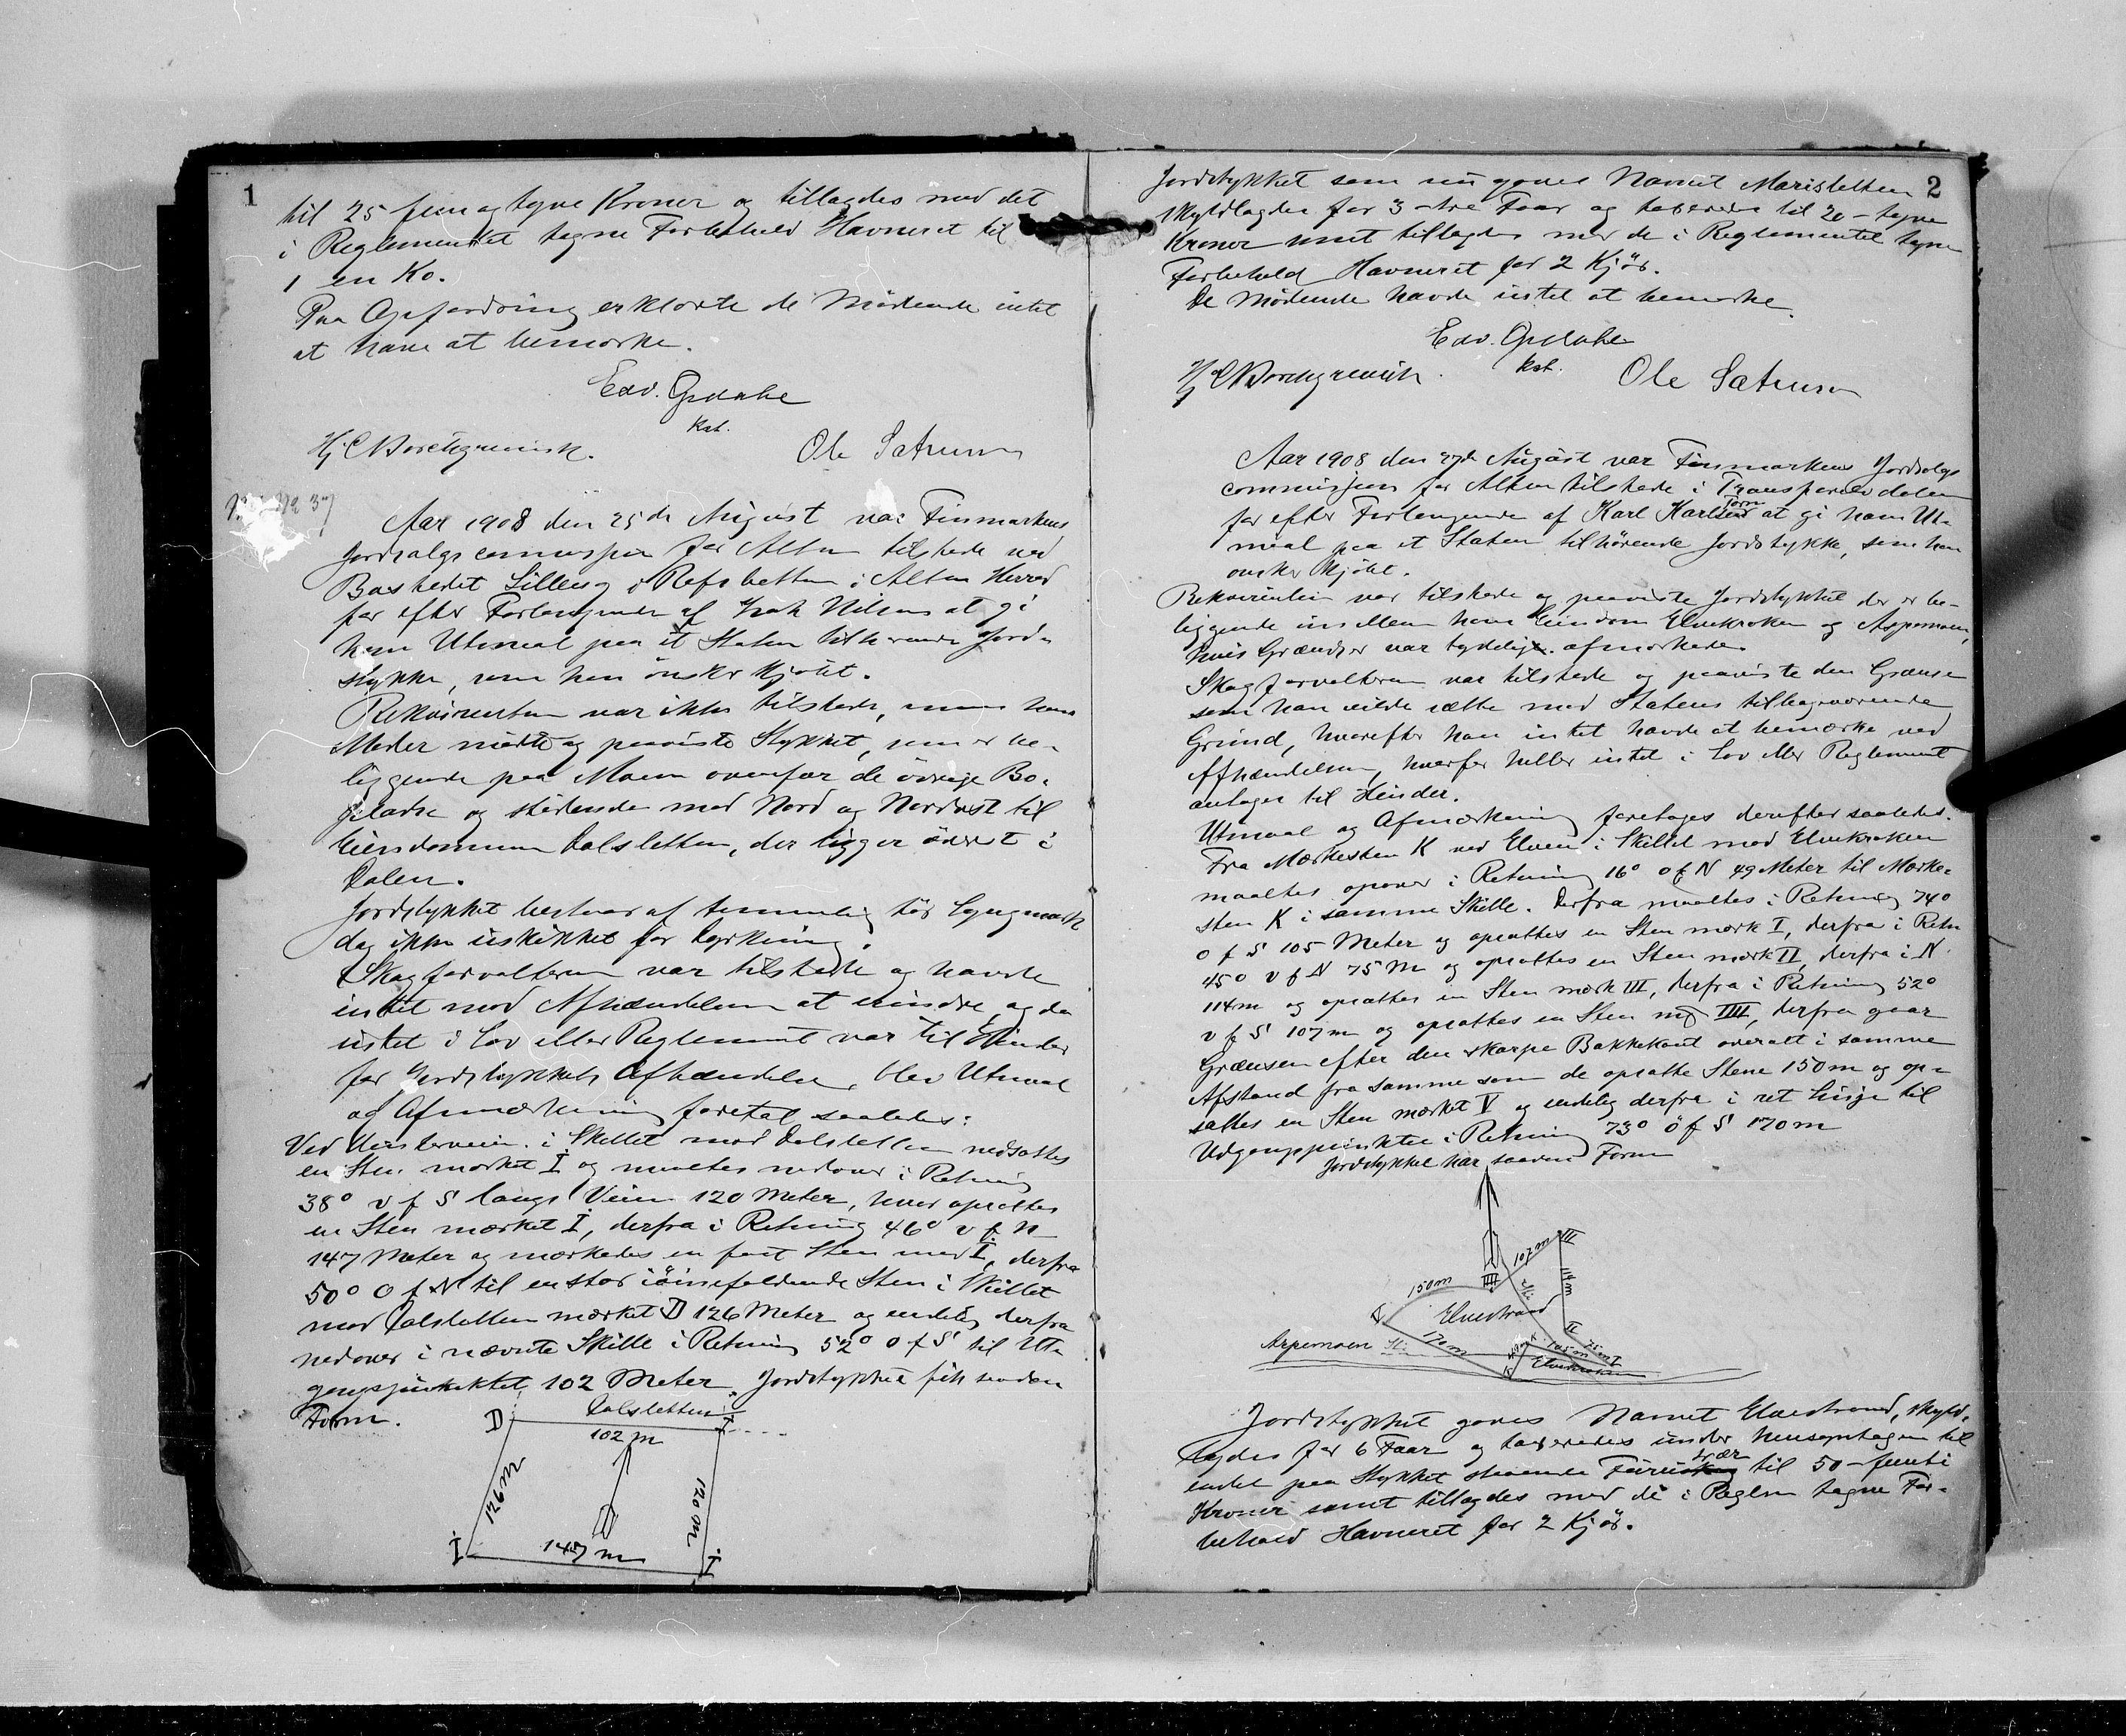 1
til 25 fem og tyve Kroner og tillagdes med det
i Reglementet tagne Forbehold Havneret til
1 en Ko.
Paa Opfordring erklærte de Mødende intet
at have at bemærke.
Edv. Opdahl
kst.
Hj C Borchgrevink.
Ole Sætrum
Aar 1908 den 25de August var Finmarkens
Jordsalgscommisjon for Alten tilstede ved
Bostedet i Refsbotten i Alten Herred
for efter Forlangende af Isak Nilsen at gi
ham Utmaal paa et Staten tilhørende Jord-
stykke, som han ønsker kjøbt.
Rekvirenten var ikke tilstede, men hans
Moder mødte og paaviste Stykket, som er be-
liggende paa Moen ovenfor de øvrige Bo-
pladse og stødende mod Nord og Nordvest til
Eiendommen Dalsletten, der ligger øverst i
Dalen.
Jordstykket bestaar af temmelig tør Lyngmark
dog ikke uskikket for Dyrkning.
Skogforvalteren var tilstede og havde
intet mod Afhændelsen at erindre, og da
intet i Lov eller Reglement var til Hinder
for Jordstykkets Afhændelse, blev Utmaal
og Afmærkning foretat saaledes:
Ved Vinterveien i Skillet mod Dalsletten nedsattes
en Sten mærket I og maaltes nedover i Retning
38° v f S langs Veien 120 Meter, hvor opsattes
en Sten mærket I, derfra i Retning 46° v f N
147 Meter og mærkedes en fast Sten med I, derfra
50° O f N til en stor iøinefaldende Sten i Skillet
mod Dalsletten mærket D 126 Meter og endelig derfra
nedover i nævnte Skille i Retning 52° O f S til Ut-
gangspunktet 102 Meter. Jordstykket fik saadan
Form.
Dalsletten
D
102 m
I
126 m
120 m
I
147 m
I
2
Jordstykket som nu gaves Navnet Marisletten
skyldlagdes for 3 - tre Faar og taxeredes til 20 - tyve
Kroner samt tillagdes med de i Reglementet tagne
Forbehold Havneret for 2 Kjør.
De Mødende havde intet at bemærke.
Edv. Opdahl
kst.
Hj C Borchgrevink.
Ole Sætrum
Aar 1908 den 27de August var Finmarkens Jordsalgs
commisjon for Alten tilstede i Transfarelvdalen
for efter Forlangende af Karl Karlsen at gi ham Ut-
maal paa et Staten tilhørende Jordstykke, som han
ønsker kjøbt.
Rekvirenten var tilstede og paaviste Jordstykket der er be-
liggende imellem hans Eiendom Elvekroken og Aspemoen,
hvis Grændser var tydelig afmærkede.
Skogforvalteren var tilstede og paaviste den Grænse
som han vilde sætte mod Statens tilbageværende
Grund, hvorefter han intet havde at bemærke ved
Afhændelsen, hvorfor heller intet i Lov eller Reglement
antages til Hinder.
Utmaal og Afmærkning foretages derefter saaledes.
Fra Mærkesten K ved Elven i Skillet med Elvekroken
maaltes opover i Retning 16° o f N 49 Meter til Mærke-
sten K i samme Skille. Derfra maaltes i Retning 74°
o f S 105 Meter og opsattes en Sten mærk I, derfra i Retn
45° v f N 75 m og opsattes en Sten mærk II, derfra i N.
114 m og opsattes en Sten mærk III, derfra i Retning 52°
v f S 107 m og opsattes en Sten IIII, derfra gaar
Grænsen efter den skarpe Bakkekant overalt i samme
Afstand fra samme som de opsatte Stene 150 m og op-
sattes en Sten mærket V og endelig derfra i ret Linje til
Udgangspunktet i Retning 73° ö f S 170 m
Jordstykket har saadan Form
107 m
III
150 m
IIII
114 m
V
Elvestrand
II
170 m
105 m
75 m
I
Aspemoen
K
Elvekroken
Jordstykket gaves Navnet Elvestrand, skyld-
lagdes for 6 Faar og taxeredes under Hensyntagen til
endel paa Stykket staaende Furutrær til 50 - femti
Kroner samt tillagdes med de i Reglem tagne For-
behold Havneret for 2 Kjør.